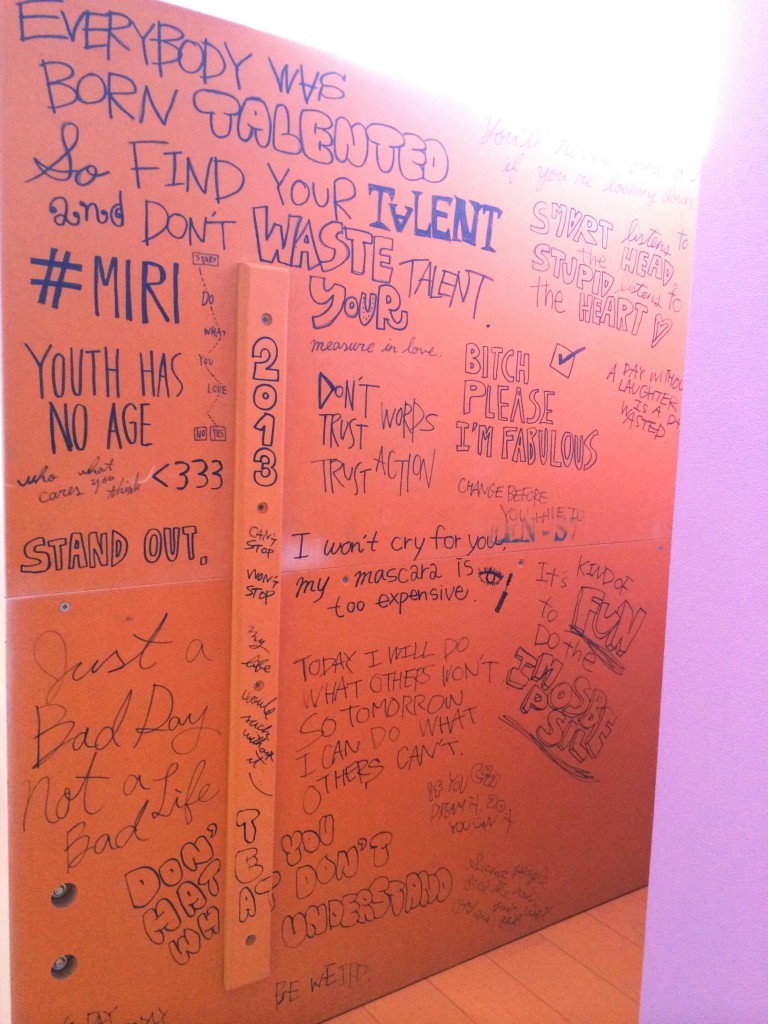 EVERYBODY WAS
BORN TALENTED
So FIND YOUR TALENT
and DON'T WASTE
YOUR TALENT.
You'll never
if you're looking down
SMART listens to
the HEAD
STUPID listens to
the HEART
#MIRI
START
DO
WHAT
YOU
LOVE
NO YES
YOUTH HAS
NO AGE
who cares what you think
<333
STAND OUT.
2013
CAN'T
STOP
WON'T
STOP
my
life
would
suck
without
it.
measure in love.
DON'T
TRUST WORDS
TRUST ACTION
BITCH
PLEASE
I'M FABULOUS
A DAY WITHOU
LAUGHTER
IS A DA
WASTED
CHANGE BEFORE
YOU HAVE TO
I won't cry for you,
my mascara is
too expensive.
It's KIND OF
FUN
to
Do the
IMPOSSIBLE
Just a
Bad Day
Not a
Bad Life
TODAY I WILL DO
WHAT OTHERS WON'T
SO TOMORROW
I CAN DO WHAT
OTHERS CAN'T.
IF YOU CAN
DREAM IT, DO
YOU CAN'T
DON'T YOU
HATE DON'T
WHAT UNDERSTAND
people
BE WEIRD.